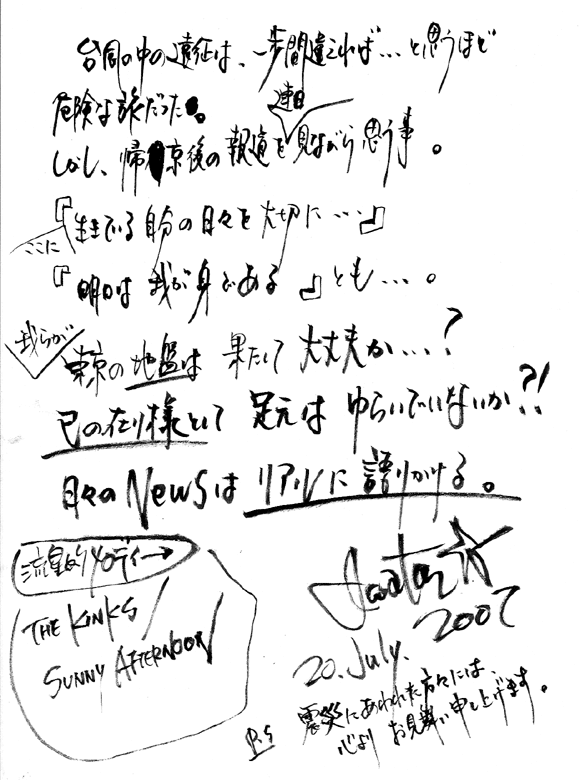 台風の中の遠征は、一歩間違えれば…と思うほど
危険な旅だった。
連日
しかし、帰京後の報道を見ながら思う事。
『生きている自分の日々を大切に…』
ここに
『明日は我が身である』とも…。
我らが
東京の地盤は果たして大丈夫か…?
己の在り様として足元はゆらいでいないか?!
日々のNewsはリアルに語りかける。
流星的メロディー→
THE KINKS/
SUNNY AFTERNOON
2007
20.July.
P.S
震災にあわれた方々には、
心よりお見舞い申し上げます。